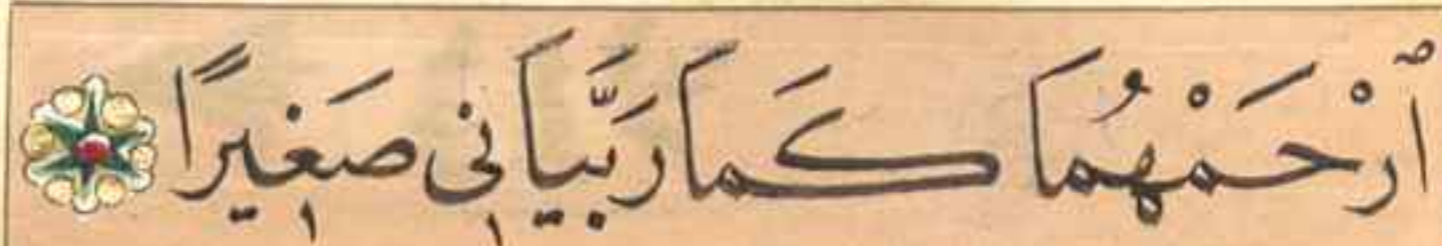 ٱرْحَمْهُمَا كَمَا رَبَّيَانِى صَغِيرًا